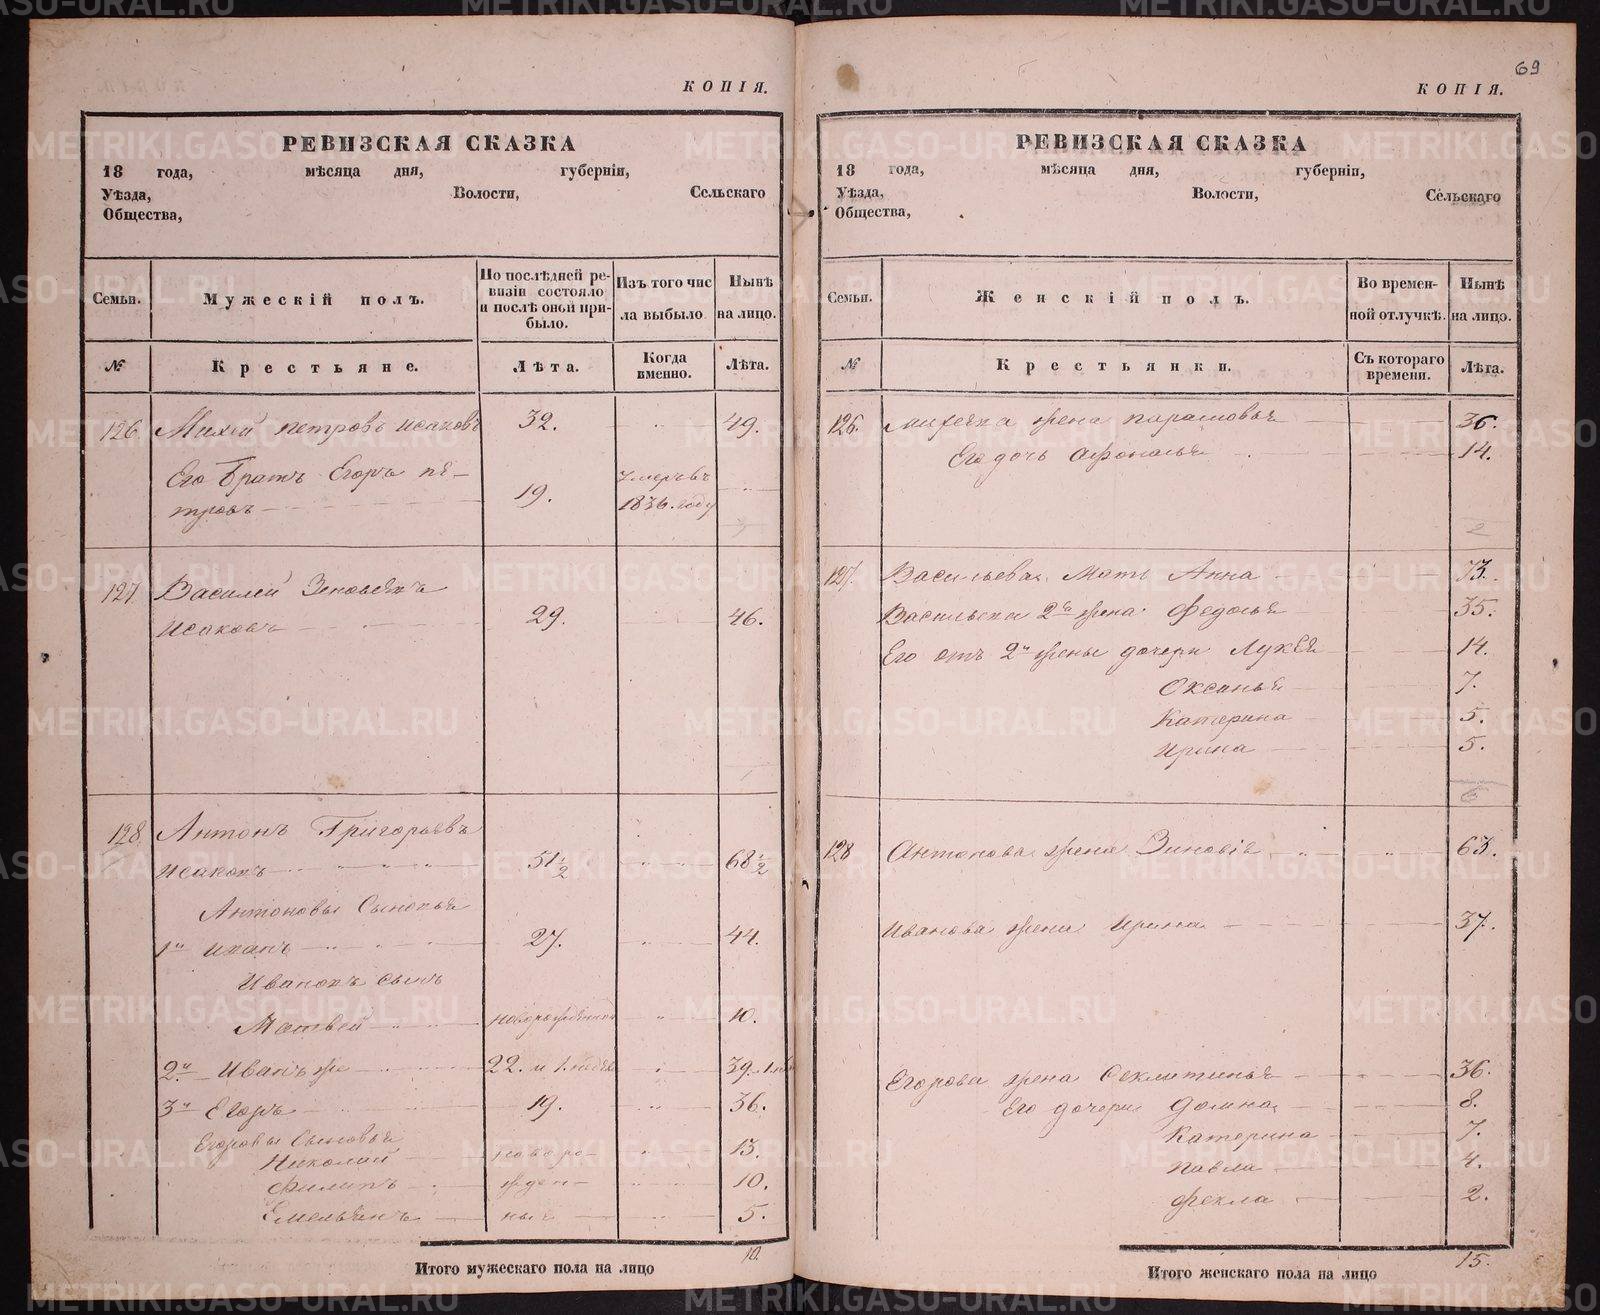 КОПІЯ.
РЕВИЗСКАЯ СКАЗКА
18 года, мѣсяца дня, губерніи,
Уѣзда, Волости, Сельскаго
Общества,
Семьи. Мужескій полъ. По послѣдней ревизіи состояло и послѣ оной прибыло. Изъ того числа выбыло Нынѣ на лицо.
№ Крестьяне. Лѣта. Когда именно. Лѣта.
126 Михей петровъ исаковъ 32. 49.
Его Братъ Егоръ пе-
тровъ 19. Умеръ въ 1836. году
127 Василей Зеновьевъ
Исаковъ 29. 46.
1
128 Антонъ Григорьевъ
исаковъ 51 1/2 68 1/2
Антоновы Сыновья
1й иванъ 27. 44.
Ивановъ сынъ
Матвей новорожденной 10.
2й Иванъ же 22. и 39.
3й Егоръ 19. 36.
Егоровы Сыновья
Николай новоро- 13.
Филипъ жден- 10.
Емельянъ ные 5.
Итого мужескаго пола на лицо 10.
69
КОПІЯ.
РЕВИЗСКАЯ СКАЗКА
18 года, мѣсяца дня, губерніи,
Уѣзда, Волости, Сельскаго
Общества,
Семьи. Женскій полъ. Во временной отлучкѣ. Нынѣ на лицо.
№ Крестьянки. Съ котораго времени. Лѣта.
126. михеева жена парасковья 36.
Его дочь афонасья 14.
2
127. Васильева Мать Анна 73.
Васильева 2я жена Федосья 35.
Его отъ 2й жены дочери Лукея 14.
Оксинья 7.
Катерина 5.
Ирина 5.
6
128 Антонова жена Зиновія 63.
Иванова жена Ирина 37.
Егорова жена Секлитинья 36.
Его дочери Домна 8.
Катерина 7.
Павла 4.
Фекла 2.
Итого женскаго пола на лицо 15.
METRIKI.GASO-URAL.RU